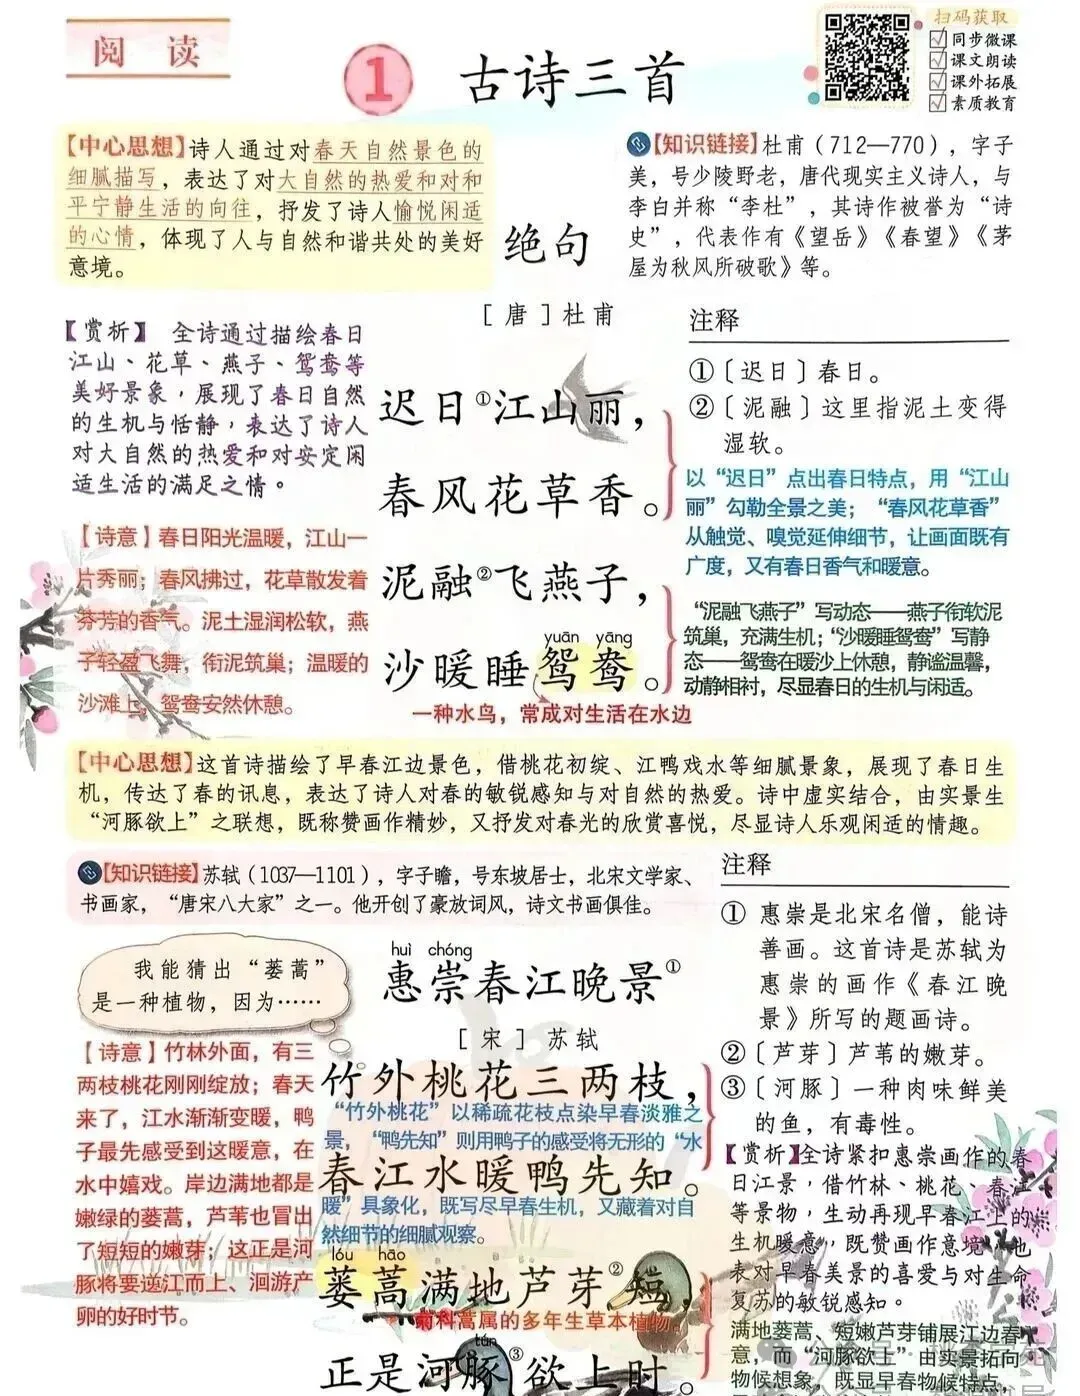 阅 读
1 古诗三首
扫码获取
同步微课
课文朗读
课外拓展
素质教育
【中心思想】诗人通过对春天自然景色的
细腻描写，表达了对大自然的热爱和对和
平宁静生活的向往，抒发了诗人愉悦闲适
的心情，体现了人与自然和谐共处的美好
意境。
【知识链接】杜甫（712—770），字子
美，号少陵野老，唐代现实主义诗人，与
李白并称“李杜”，其诗作被誉为“诗
史”，代表作有《望岳》《春望》《茅
屋为秋风所破歌》等。
绝句
［唐］杜甫
【赏析】 全诗通过描绘春日
江山、花草、燕子、鸳鸯等
美好景象，展现了春日自然
的生机与恬静，表达了诗人
对大自然的热爱和对安定闲
适生活的满足之情。
【诗意】春日阳光温暖，江山一
片秀丽；春风拂过，花草散发着
芬芳的香气。泥土湿润松软，燕
子轻盈飞舞，衔泥筑巢；温暖的
沙滩上，鸳鸯安然休憩。
迟日①江山丽，
春风花草香。
泥融②飞燕子，
yuān yāng
沙暖睡鸳鸯。
一种水鸟，常成对生活在水边
注释
①〔迟日〕春日。
②〔泥融〕这里指泥土变得
湿软。
以“迟日”点出春日特点，用“江山
丽”勾勒全景之美；“春风花草香”
从触觉、嗅觉延伸细节，让画面既有
广度，又有春日香气和暖意。
“泥融飞燕子”写动态——燕子衔软泥
筑巢，充满生机；“沙暖睡鸳鸯”写静
态——鸳鸯在暖沙上休憩，静谧温馨，
动静相衬，尽显春日的生机与闲适。
【中心思想】这首诗描绘了早春江边景色，借桃花初绽、江鸭戏水等细腻景象，展现了春日生
机，传达了春的讯息，表达了诗人对春的敏锐感知与对自然的热爱。诗中虚实结合，由实景生
“河豚欲上”之联想，既称赞画作精妙，又抒发对春光的欣赏喜悦，尽显诗人乐观闲适的情趣。
【知识链接】苏轼（1037—1101），字子瞻，号东坡居士，北宋文学家、
书画家，“唐宋八大家”之一。他开创了豪放词风，诗文书画俱佳。
我能猜出“蒌蒿”
是一种植物，因为……
【诗意】竹林外面，有三
两枝桃花刚刚绽放；春天
来了，江水渐渐变暖，鸭
子最先感受到这暖意，在
水中嬉戏。岸边满地都是
嫩绿的蒌蒿，芦苇也冒出
了短短的嫩芽；这正是河
豚将要逆江而上、洄游产
卵的好时节。
huì chóng
惠崇春江晚景①
［宋］苏轼
竹外桃花三两枝，
“竹外桃花”以稀疏花枝点染早春淡雅之
景，“鸭先知”则用鸭子的感受将无形的“水
春江水暖鸭先知。
暖”具象化，既写尽早春生机，又藏着对自
然细节的细腻观察。
lóu hāo
蒌蒿满地芦芽②短，
菊科蒿属的多年生草本植物。
tún
正是河豚③欲上时。
注释
① 惠崇是北宋名僧，能诗
善画。这首诗是苏轼为
惠崇的画作《春江晚
景》所写的题画诗。
②〔芦芽〕芦苇的嫩芽。
③〔河豚〕一种肉味鲜美
的鱼，有毒性。
【赏析】全诗紧扣惠崇画作的春
日江景，借竹林、桃花、春江
等景物，生动再现早春江上的
生机暖意，既赞画作意境，也
表对早春美景的喜爱与对生命
复苏的敏锐感知。
满地蒌蒿、短嫩芦芽铺展江边春
意，而“河豚欲上”由实景拓向
物候想象，既显早春物候特点，